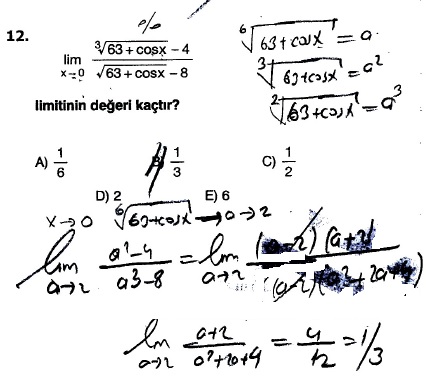 0/0
12.
lim x→0 (∛(63 + cosx) – 4) / (√(63 + cosx) – 8)
limitinin değeri kaçtır?
A) 1/6 B) 1/3 C) 1/2
D) 2 E) 6
⁶√(63+cosx) = a
³√(63+cosx) = a²
²√(63+cosx) = a³
x→0 ⁶√(63+cosx) → a → 2
lim a→2 (a²-4)/(a³-8) = lim a→2 (a-2)(a+2)/((a-2)(a²+2a+4))
lim a→2 (a+2)/(a²+2a+4) = 4/12 = 1/3